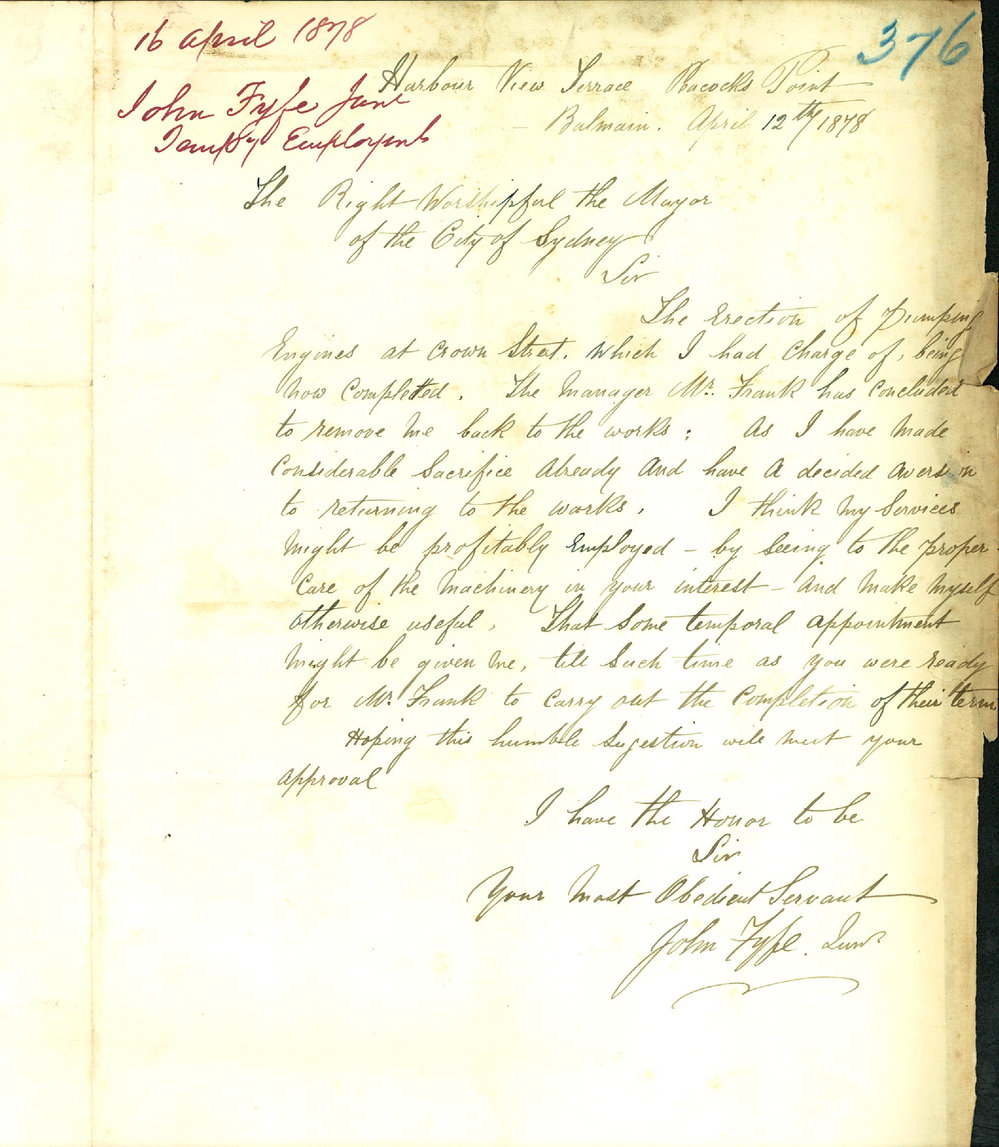 16 April 1878
376
John Fyfe Junr
Tempy Employmt
Harbour View Terrace Peacocks Point
Balmain. April 12th/1878
The Right Worshipful the Mayor
of the City of Sydney
Sir
The Erection of Pumping
Engines at Crown Street. which I had charge of, being
now completed. The Manager Mr. Frank has concluded
to remove me back to the works; As I have made
considerable sacrifice already and have a decided aversion
to returning to the works. I think my services
might be profitably employed - by seeing to the proper
care of the machinery in your interest - and make myself
otherwise useful. That some temporal appointment
might be given me, till such time as you were ready
for Mr. Frank to carry out the completion of their term
Hoping this humble sugestion will meet your
approval
I have the Honor to be
Sir
Your Most Obedient Servant
John Fyfe. Junr